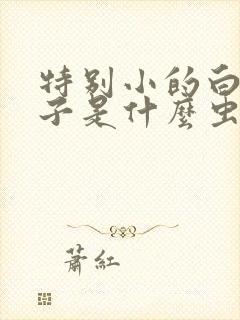 特别小的白
子是什麼虫
蕭紅